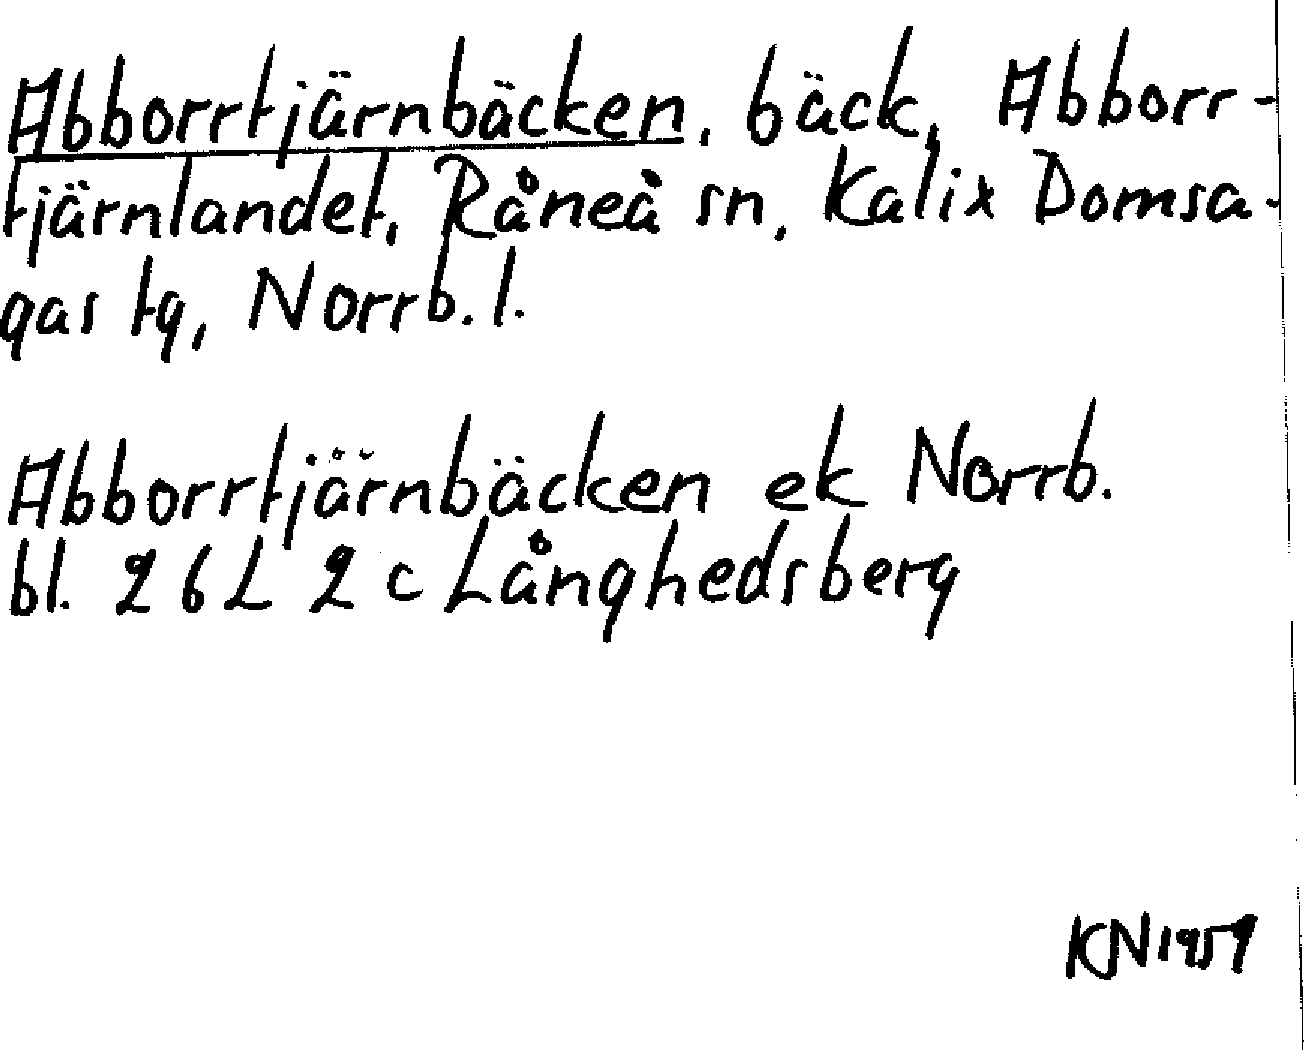 Abborrtjärnbäcken, bäck, Abborr-
tjärnlandet, Råneå sn, Kalix Domsa-
gas tg, Norrb. l.
Abborrtjärnbäcken ek Norrb.
bl. 26L 2c Långhedsberg
KN 1959